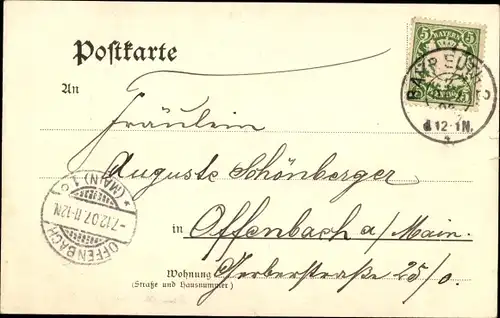 Postkarte
5 BAYERN 5
An
Fräulein
Auguste Schönberger
in Offenbach a/Main.
Wohnung Gerberstraße 25/0.
(Straße und Hausnummer)
12-1N.
* (MAIN) 1 °
-7.12.07.11-12N.
OFFENBACH